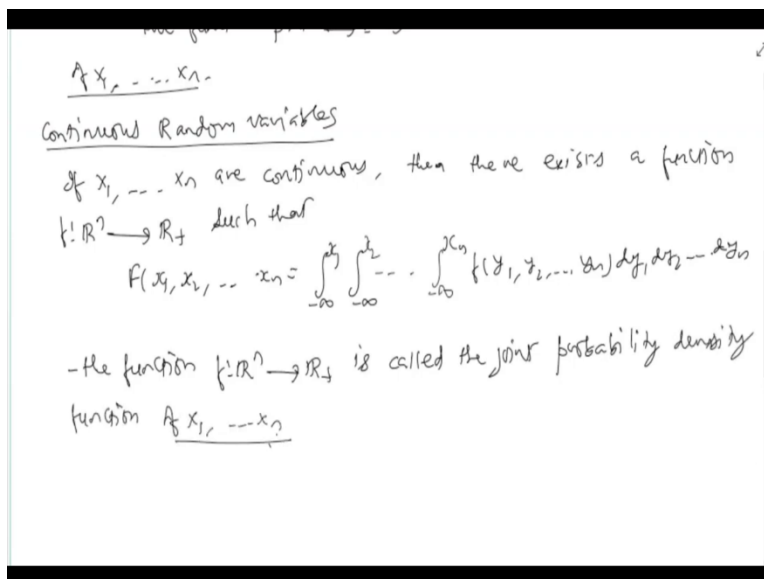 of X1, .... Xn.
Continuous Random variables
If X1, .... Xn are continuous, then there exists a function
f: R^n → R+ such that
F(x1, x2, .. .xn = ∫_{-∞}^{x1} ∫_{-∞}^{x2} .... ∫_{-∞}^{xn} f(y1, y2, ... yn) dy1 dy2 --- dyn
- the function f: R^n → R+ is called the joint probability density
function of X1, ---Xn